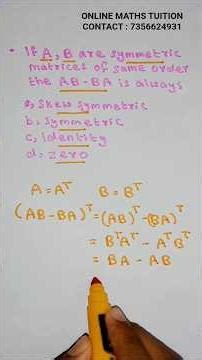 ONLINE MATHS TUITION
CONTACT : 7356624931
• If A, B are symmetric
matrices of same order
the AB-BA is always
a, skew symmetric
b, symmetric
c, identity
d, zero
A = Aᵀ B = Bᵀ
(AB-BA)ᵀ = (AB)ᵀ -(BA)ᵀ
= BᵀAᵀ - AᵀBᵀ
= BA - AB